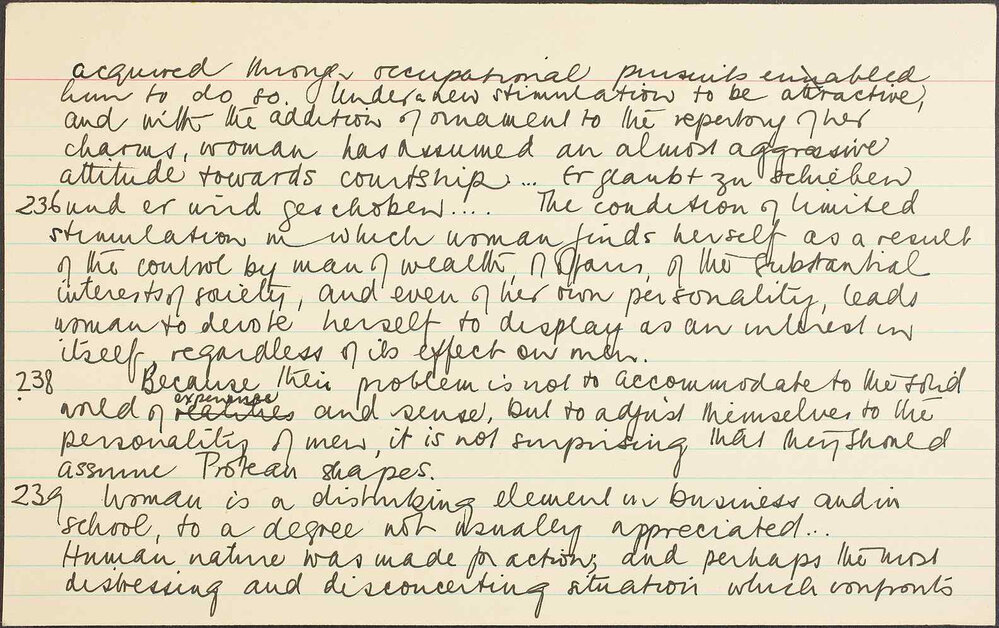 acquired through occupational pursuits ennabled
him to do so. Under a new stimulation to be attractive,
and with the addition of ornament to the repertory of her
charms, woman has assumed an almost aggressive
attitude towards courtship... Er glaubt zu schieben
236 und er wird geschoben.... The condition of limited
stimulation in which woman finds herself as a result
of the control by man of wealth, of affairs, of the substantial
interests of society, and even of her own personality, leads
woman to devote herself to display as an interest in
itself, regardless of its effect on men.
238 Because their problem is not to accommodate to the solid
world of realities experience and sense, but to adjust themselves to the
personality of men, it is not surprising that they should
assume Protean shapes.
239 Woman is a disturbing element in business and in
school, to a degree not usually appreciated...
Human nature was made for action; and perhaps the most
distressing and disconcerting situation which confronts